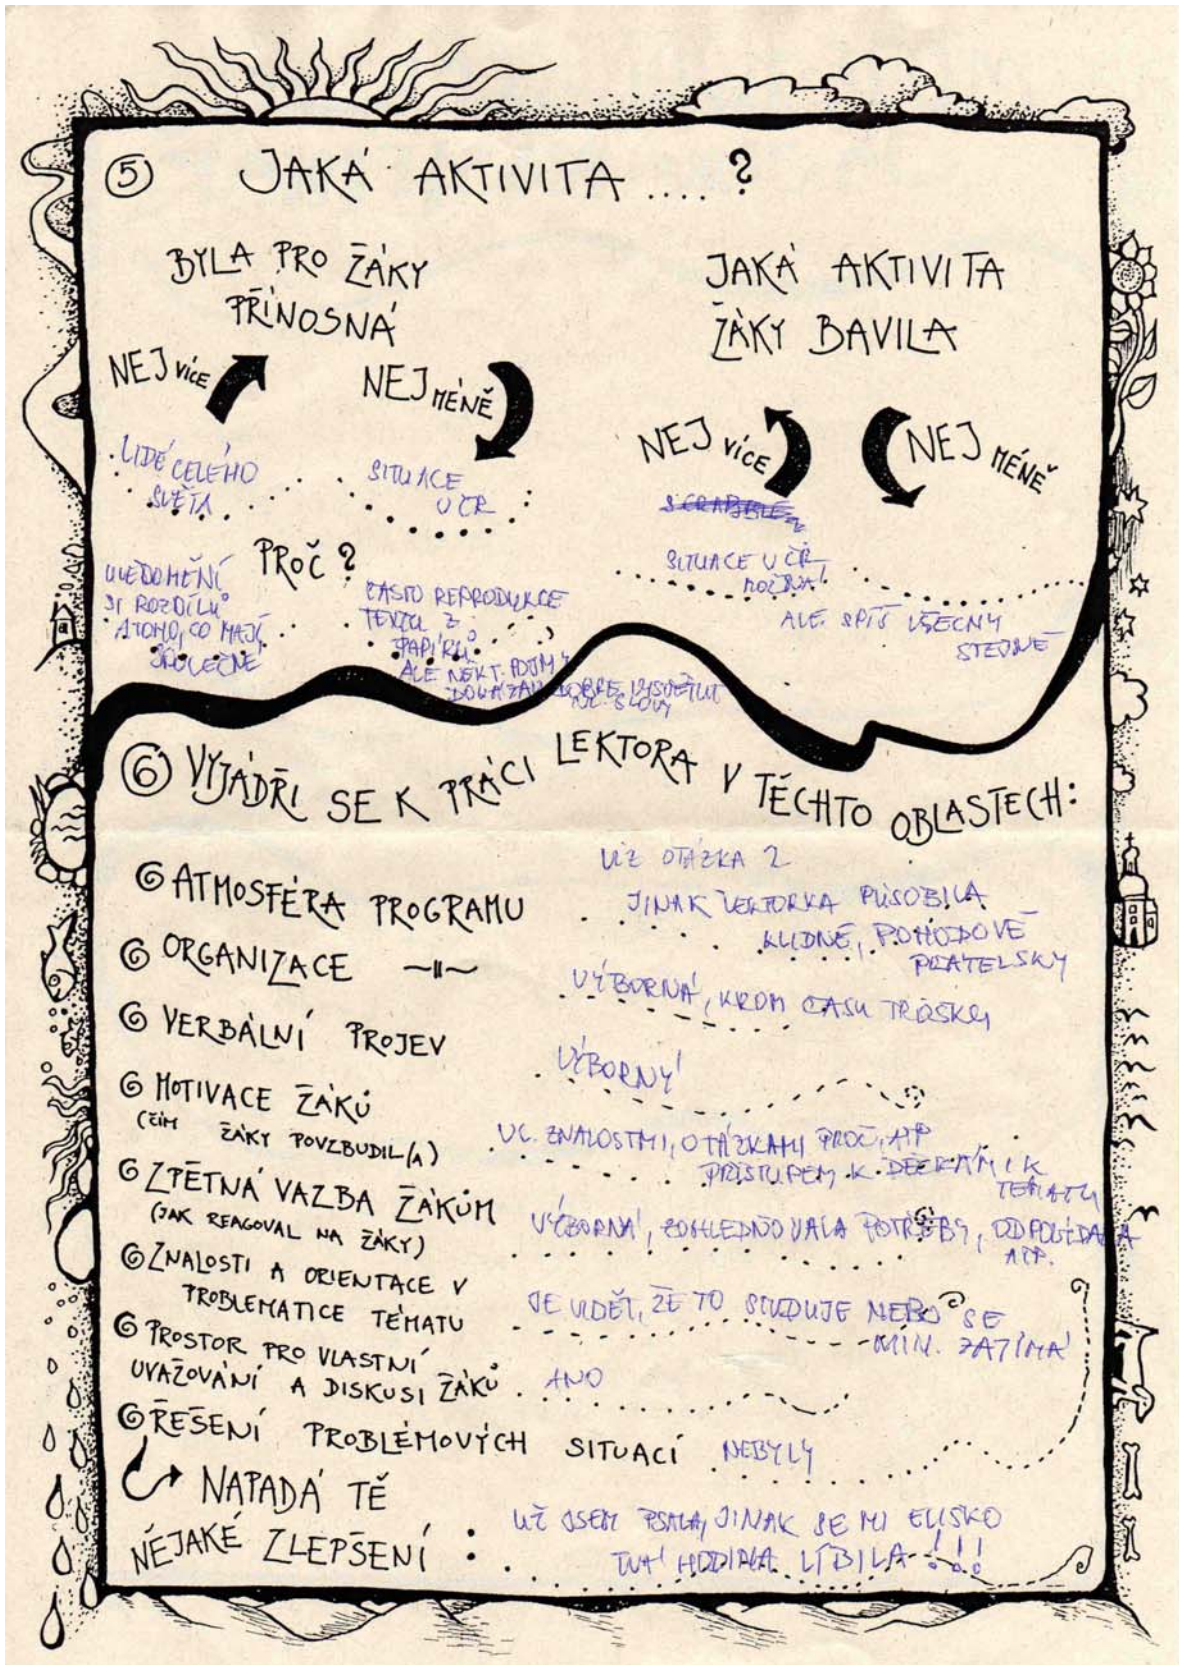 5 JAKÁ AKTIVITA .... ?
BYLA PRO ŽÁKY
PŘÍNOSNÁ
NEJVÍCE
NEJMÉNĚ
LIDÉ CELÉHO
SVĚTA
SITUACE
V ČR
PROČ?
UVĚDOMĚNÍ
SI ROZDÍLŮ
A TOHO, CO MAJÍ
SPOLEČNÉ
ČASTO REPRODUKCE
TEXTU Z
PAPÍRŮ
ALE NĚKT. POJMY
DOKÁZALI DOBŘE VYSVĚTLIT
VL. SLOVY
JAKÁ AKTIVITA
ŽÁKY BAVILA
NEJVÍCE
NEJMÉNĚ
SCRABBLE
SITUACE V ČR
MOŽNÁ
ALE SPÍŠ VŠECHNY
STEJNĚ
6 VYJÁDŘI SE K PRÁCI LEKTORA V TĚCHTO OBLASTECH:
ATMOSFÉRA PROGRAMU
VIZ OTÁZKA 2
JINAK LEKTORKA PŮSOBILA
KLIDNĚ, POHODOVĚ
PŘÁTELSKY
ORGANIZACE —II—
VÝBORNÁ, KROM ČASU TROŠKU
VERBÁLNÍ PROJEV
VÝBORNÝ
MOTIVACE ŽÁKŮ
(ČÍM ŽÁKY POVZBUDIL(A)
VL. ZNALOSTMI, OTÁZKAMI PROČ, ATP
PŘÍSTUPEM K DĚCKÁM I K
TÉMATU
ZPĚTNÁ VAZBA ŽÁKŮM
(JAK REAGOVAL NA ŽÁKY)
VÝBORNÁ, ZOHLEDŇOVALA POTŘEBY, ODPOVÍDALA
ATP.
ZNALOSTI A ORIENTACE V
PROBLEMATICE TÉMATU
JE VIDĚT, ŽE TO STUDUJE NEBO SE
MIN. ZAJÍMÁ
PROSTOR PRO VLASTNÍ
UVAŽOVÁNÍ A DISKUSI ŽÁKŮ
ANO
ŘEŠENÍ PROBLÉMOVÝCH SITUACÍ
NEBYLY
NAPADÁ TĚ
NĚJAKÉ ZLEPŠENÍ :
UŽ JSEM PSALA, JINAK SE MI ELIŠKO
TVÁ HODINA LÍBILA !!!